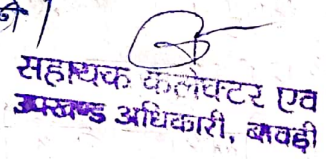 सहायक कलेक्टर एव
उपखण्ड अधिकारी, बावड़ी